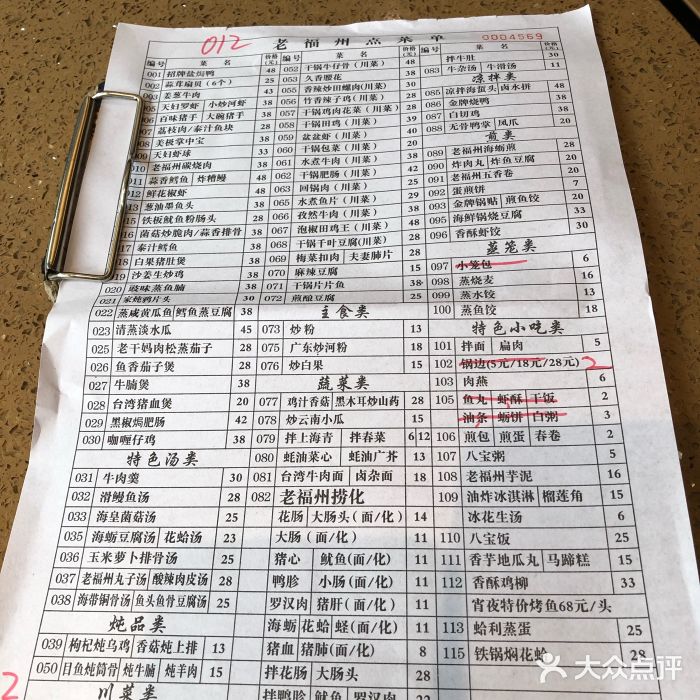 012
老福州点菜单
0004569
编号 菜名 价格(元)
001 招牌盐焗鸭 48
002 蒜茸扇贝(6个) 25
003 姜葱牛肉 43
005 天妇罗虾 小炒河虾 38
006 百味猪手 大碗猪手 38
007 荔枝肉/泰汁鱼块 28
008 美极掌中宝 38
009 天妇虾球 33
010 老福州碳烧肉 38
011 蒜香鳕鱼 炸糟鳗 38
012 鲜花椒虾 48
013 葱油墨鱼头 38
015 铁板鱿鱼粉肠头 38
016 菌菇炒脆肉/蒜香排骨 38
017 泰汁鳕鱼 38
018 白果猪肚煲 38
019 沙姜生炒鸡 38
020 豉味蒸鱼腩 38
021 家炖鸦片头 30
022 蒸咸黄瓜鱼 鳕鱼蒸豆腐 38
023 清蒸淡水瓜 45
025 老干妈肉松蒸茄子 28
026 鱼香茄子煲 25
027 牛腩煲 38
028 台湾猪血煲 20
029 黑椒焗肥肠 42
030 咖喱仔鸡 38
特色汤类
031 牛肉羹 30
032 滑鳗鱼汤 28
033 海皇菌菇汤 25
035 海蛎豆腐汤 花蛤汤 23
036 玉米萝卜排骨汤 25
037 老福州丸子汤 酸辣肉皮汤 28
038 海带铜骨汤 鱼头鱼骨豆腐汤 25
炖品类
039 枸杞炖乌鸡 香菇炖上排 13
050 目鱼炖筒骨 炖牛腩 炖羊肉 15
川菜类
编号 菜名 价格(元)
052 干锅牛仔骨(川菜) 48
053 久香腰花 38
055 香辣炒田螺肉(川菜)
056 竹香辣子鸡(川菜)
057 干锅鸡肉花菜(川菜)
058 干锅田鸡(川菜)
059 盆盆虾(川菜)
060 干锅包菜(川菜)
061 水煮牛肉(川菜)
062 干锅肥肠(川菜)
063 回锅肉(川菜)
065 水煮鱼片(川菜)
066 孜然牛肉(川菜)
067 泡椒田鸡王(川菜)
068 干锅千叶豆腐(川菜)
069 梅菜扣肉 夫妻肺片 28
070 麻辣豆腐 15
071 干锅片片鱼 38
072 煎酿豆腐 25
主食类
073 炒粉 13
075 广东炒河粉 18
076 炒白果 15
蔬菜类
077 鸡汁香菇 黑木耳炒山药 28
078 炒云南小瓜 15
079 拌上海青 拌春菜 6 12
080 蚝油菜心 蚝油广芥 13
081 台湾牛肉面 卤杂面 18
082 老福州捞化
花肠 大肠头(面/化) 14
大肠(面/化) 11
猪心 鱿鱼(面/化) 11
鸭胗 小肠(面/化) 11
罗汉肉 猪肝(面/化) 11
海蛎 花蛤 蛏(面/化) 11
猪血 猪肺(面/化) 8
拌花肠 大肠头 28
拌鸭胗 鱿鱼 罗汉肉
编号 菜名 价格(元)
拌牛肚 30
083 牛杂汤 牛滑汤 11
凉拌类
085 凉拌海蜇头 卤水拼 48
086 金牌烧鸭 28
087 白切鸡 28
088 无骨鸭掌 凤爪
煎类
089 老福州海蛎煎 28
090 炸肉丸 炸鱼豆腐 20
091 老福州五香卷 20
092 蛋煎饼 7
093 金牌锅贴 煎鱼饺 20
095 海鲜锅烧豆腐 33
096 香酥虾饺 30
蒸笼类
097 小笼包 6
098 蒸烧麦 16
099 蒸水饺 13
100 蒸鱼饺 18
特色小吃类
101 拌面 扁肉 5
102 锅边(5元/18元/28元) 2
103 肉燕 6
105 鱼丸 虾酥 干饭 2
油条 蛎饼 白粥 3
106 煎包 煎蛋 春卷 2
107 八宝粥 5
108 老福州芋泥 16
109 油炸冰淇淋 榴莲角 15
冰花生汤 6
110 八宝饭 25
111 香芋地瓜丸 马蹄糕 15
112 香酥鸡柳 33
宵夜特价烤鱼68元/头
113 蛤利蒸蛋 25
115 铁锅焖花蛤 28
2
大众点评